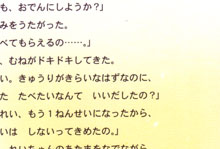 も、おでんにしようか?」
みをうたがった。
べてもらえるの……。」
、むねがドキドキしてきた。
い。きゅうりがきらいなはずなのに、
た　たべたいなんて　いいだしたの?」
れい、もう1ねんせいになったから、
いは　しないってきめたの。」
れいちゃんのあたまをなでながら